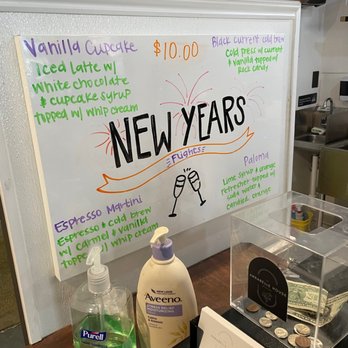 Vanilla Cupcake
Iced latte w/
white chocolate
& cupcake syrup
topped w/ whip cream
$10.00
Black current cold brew
Cold press w/ current
& vanilla topped w/
rock candy
NEW YEARS
Flights
Espresso Martini
Espresso & cold brew
w/ carmel & vanilla
topped w/ whip cream
Paloma
Lime syrup & orange
refresher topped w/
candied orange
PURELL
Aveeno